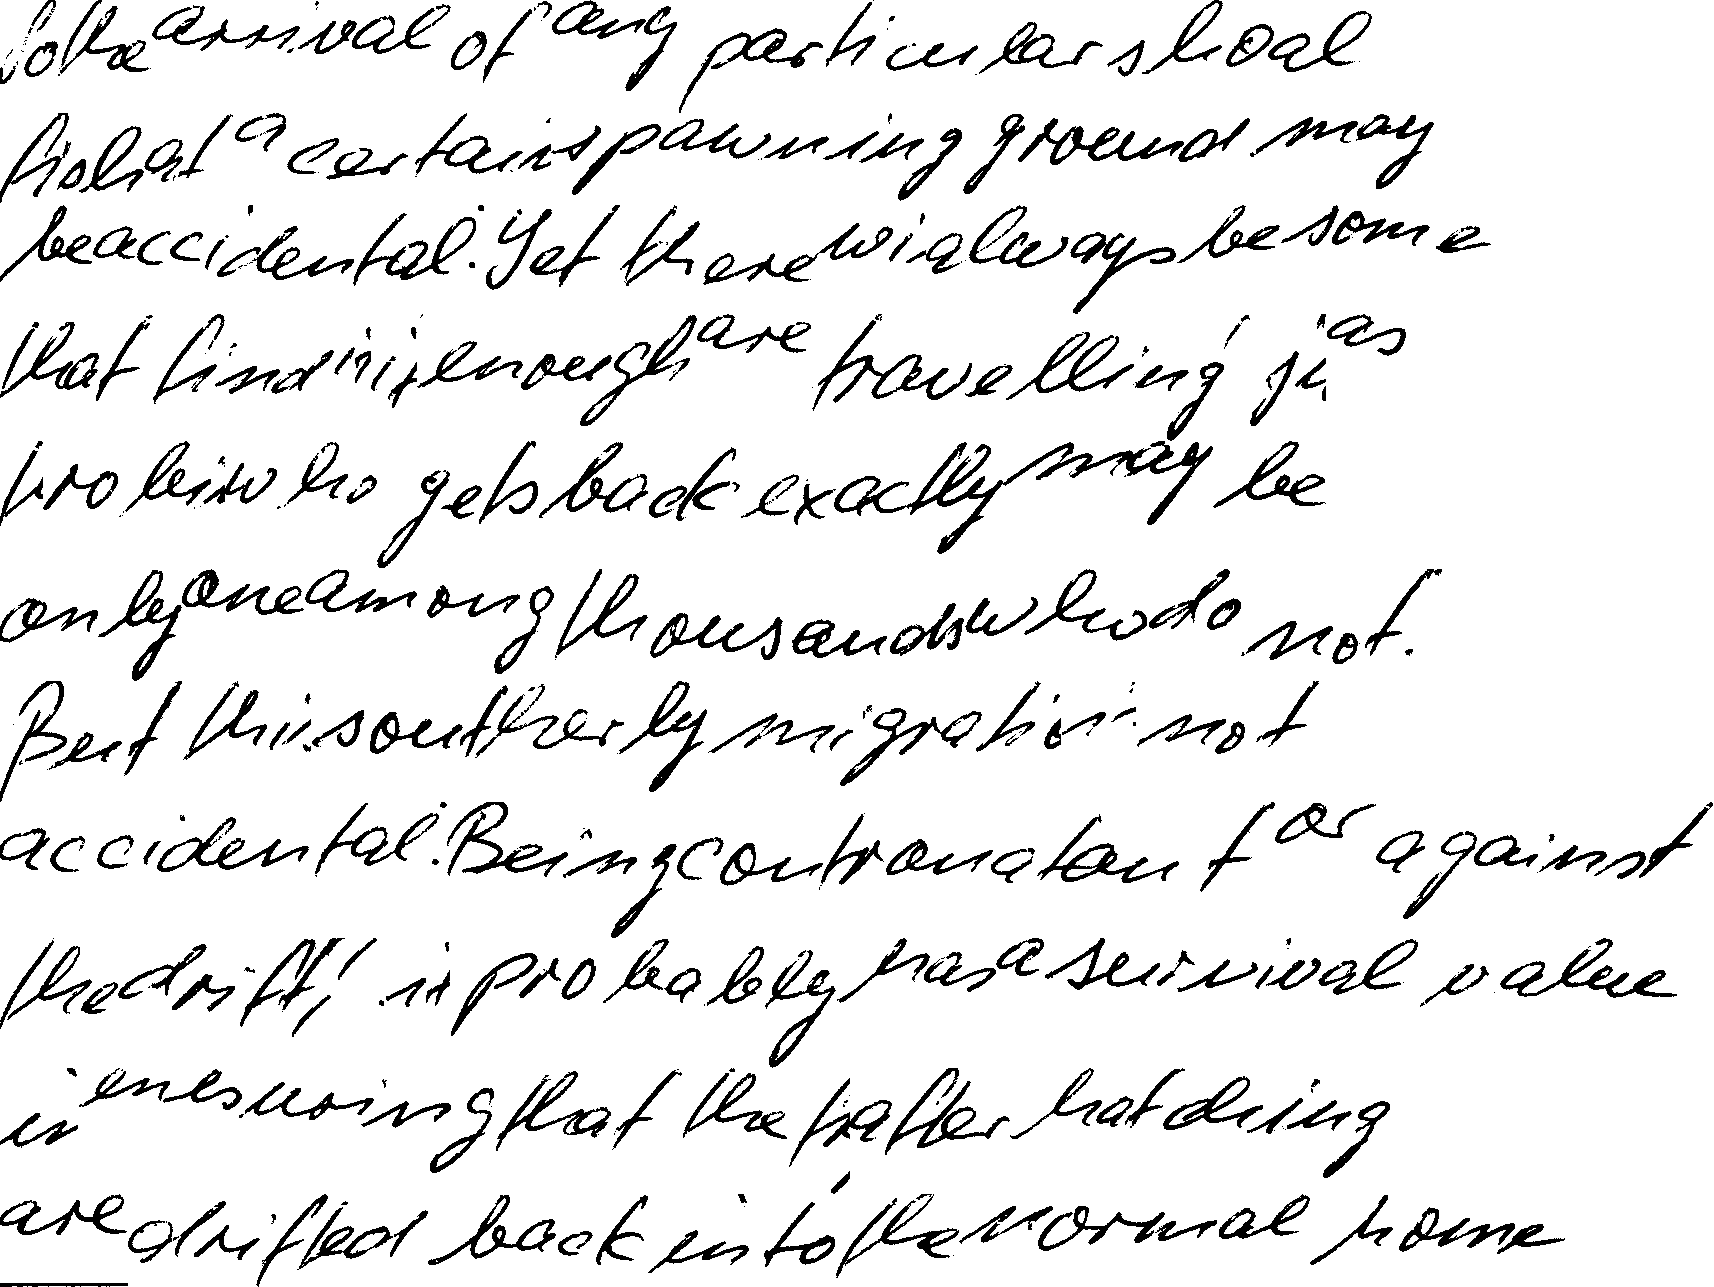 So the arrival of any particular shoal
fish at a certain spawning ground may
be accidental. Yet there wi always be some
that find it enough are travelling as
who gets back exactly may be
only one among thousands who do not.
But this southerly migration not
accidental. Being contranatant or against
the drift, it probably has a survival value
in ensuring that the fry after hatching
are drifted back into the normal home